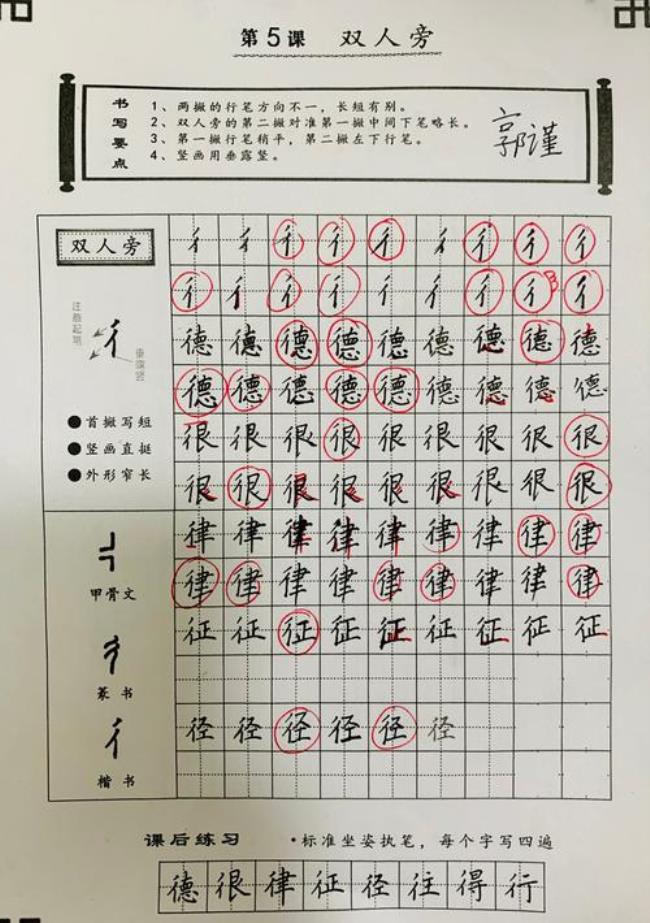 第5课 双人旁
书写要点
1、两撇的行笔方向不一，长短有别。
2、双人旁的第二撇对准第一撇中间下笔略长。
3、第一撇行笔稍平，第二撇左下行笔。
4、竖画用垂露竖。
郭谨
双人旁
注意起笔
垂露竖
彳
●首撇写短
●竖画直挺
●外形窄长
甲骨文
篆书
彳
楷书
彳彳彳彳彳彳彳彳彳
彳彳彳彳彳彳彳彳彳
德德德德德德德德德
德德德德德德德德德
很很很很很很很很很
很很很很很很很很很
律律律律律律律律律
律律律律律律律律律
征征征征征征征征征
径径径径径径
课后练习 •标准坐姿执笔，每个字写四遍
德很律征径往得行